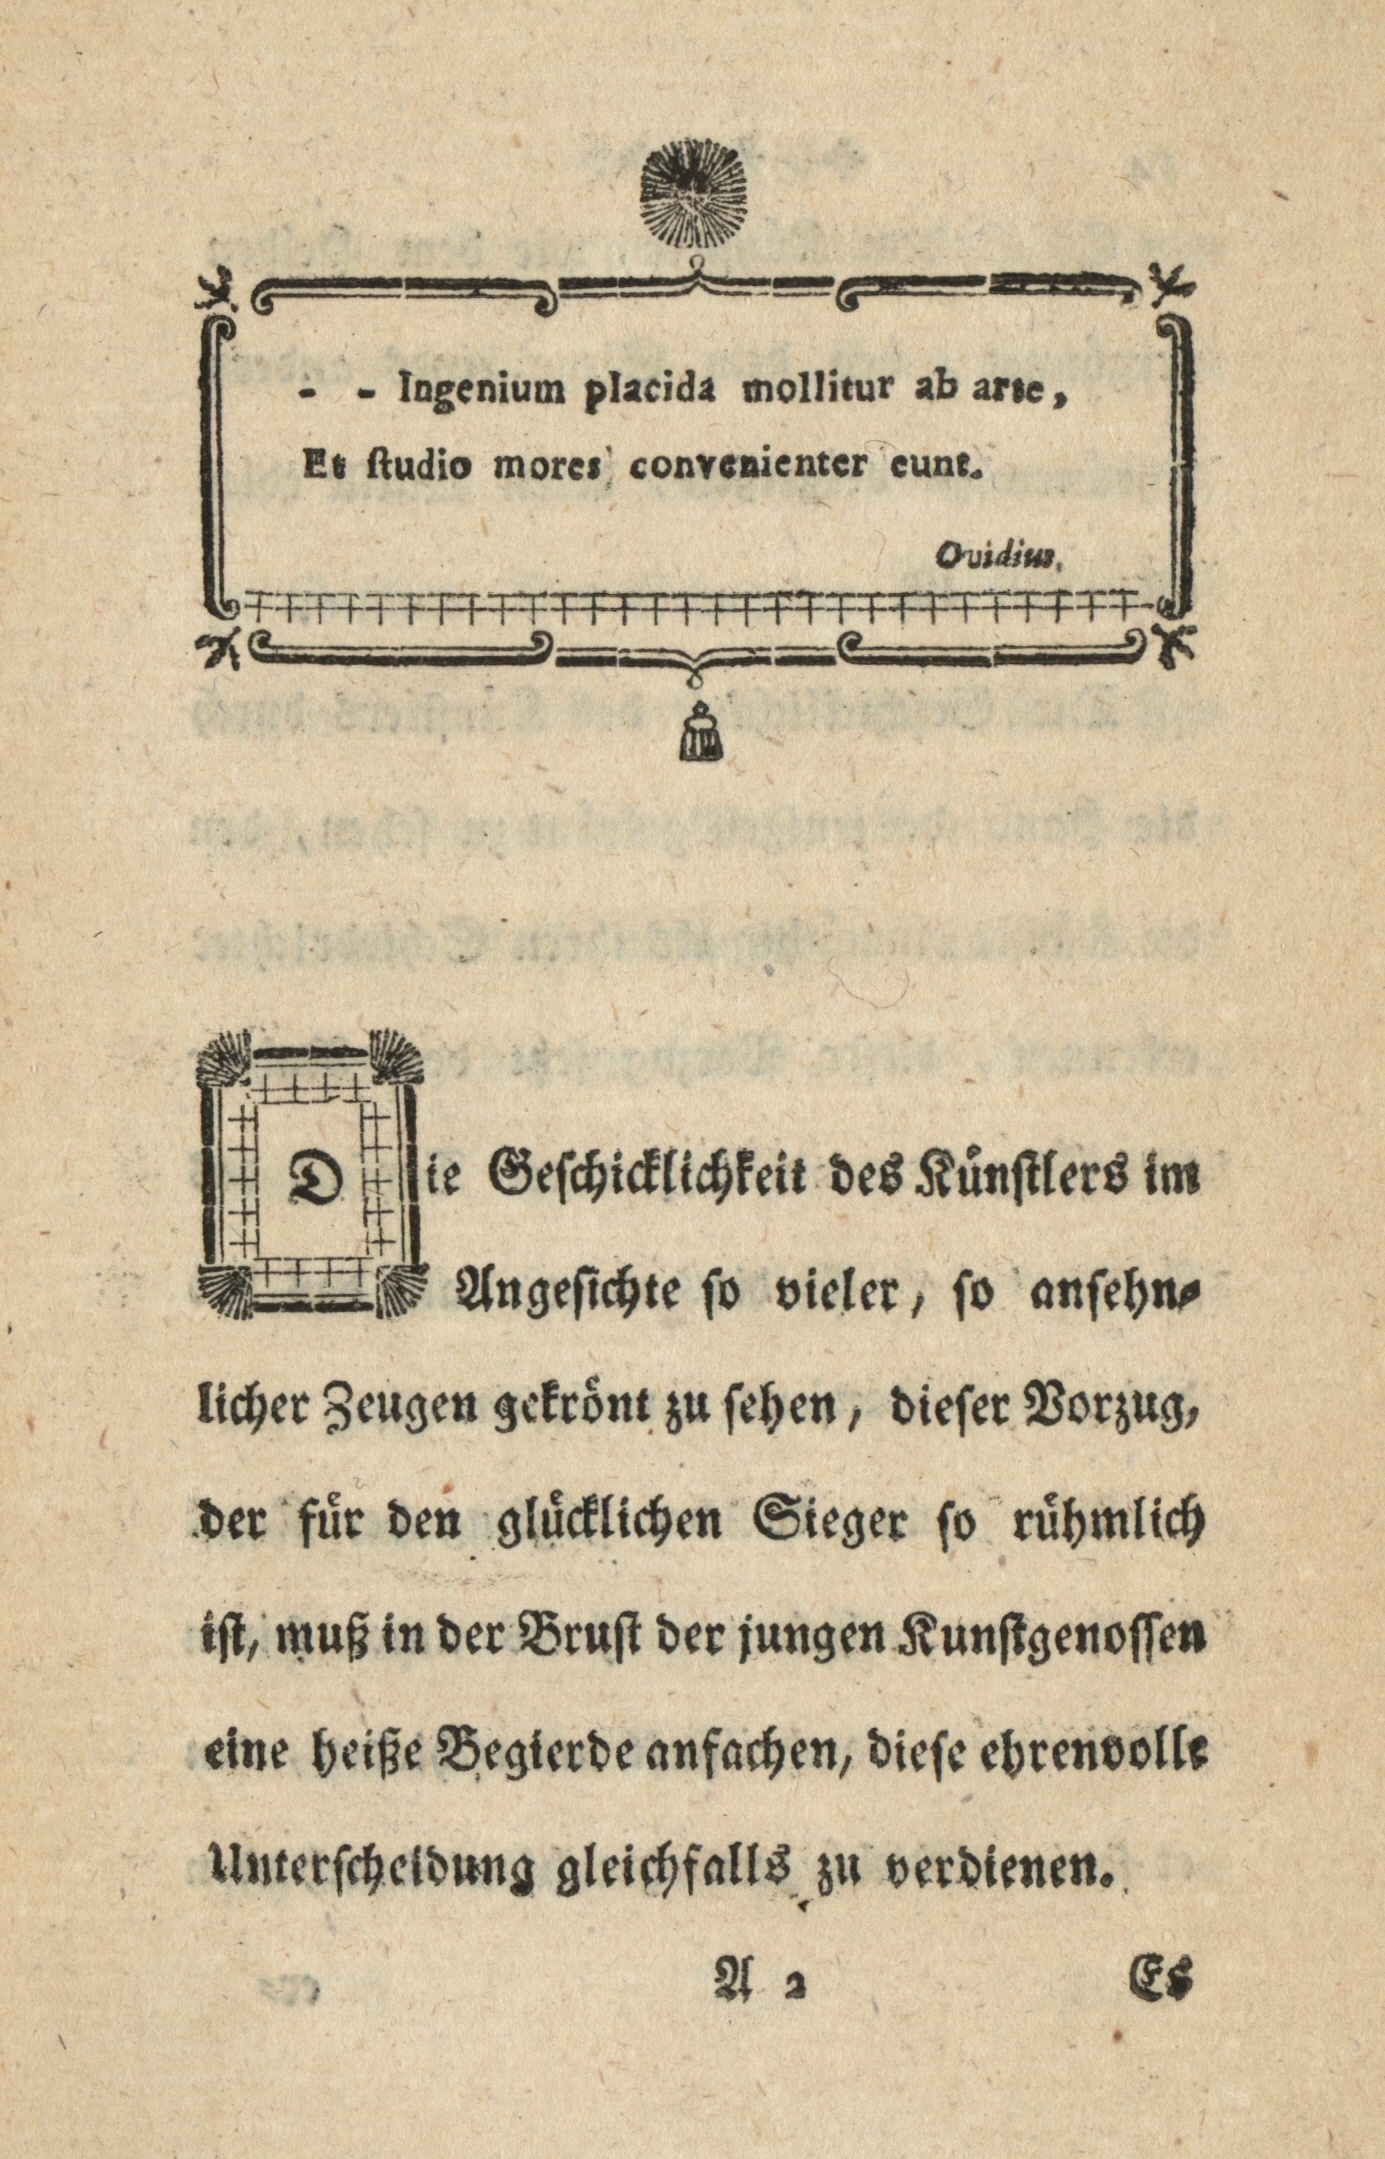 - - Ingenium placida mollitur ab arte,
Et ſtudio mores convenienter eunt.
Ovidius.
Die Geſchicklichkeit des Kuͤnſtlers im
Angeſichte ſo vieler, ſo anſehn⸗
licher Zeugen gekroͤnt zu ſehen, dieſer Vorzug,
der fuͤr den gluͤcklichen Sieger ſo ruͤhmlich
iſt, muß in der Bruſt der jungen Kunſtgenoſſen
eine heiße Begierde anfachen, dieſe ehrenvolle
Unterſcheidung gleichfalls zu verdienen.
A 2 Es